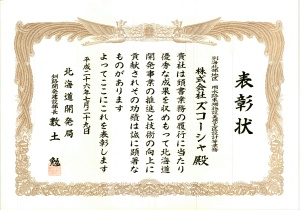 表彰状
株式会社ズコーシャ殿
貴社は頭書業務の履行に当たり
優秀な成果を収めもって北海道
開発事業の推進と技術の向上に
貢献されその功績は誠に顕著な
ものがあります
よってここにこれを表彰します
平成二十六年七月二十九日
北海道開発局
釧路開発建設部長 数土 勉